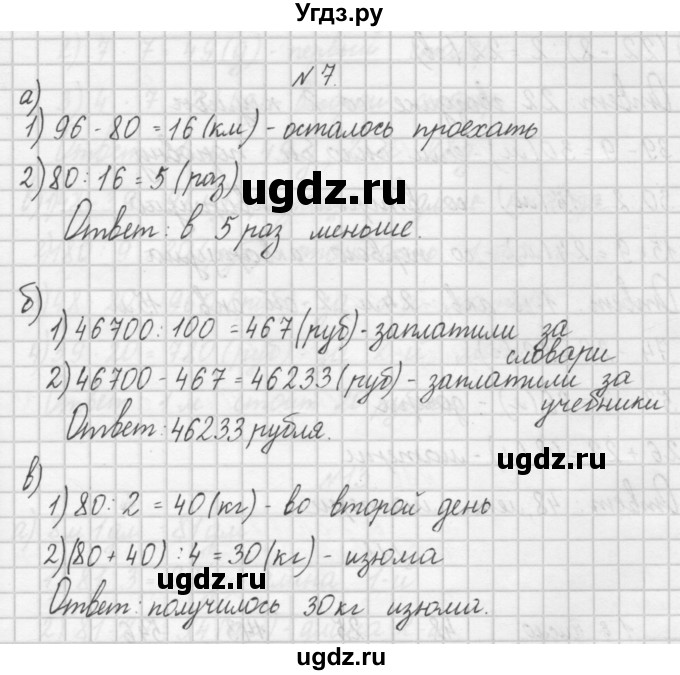 Угдз.ру
№ 7.
а)
1) 96 - 80 = 16 (км) - осталось проехать
2) 80 : 16 = 5 (раз)
ugdz.ru
Ответ: в 5 раз меньше.
б)
1) 46700 : 100 = 467 (руб) - заплатили за
словари
2) 46700 - 467 = 46233 (руб) - заплатили за
учебники
Ответ: 46233 рубля.
ugdz.ru
в)
1) 80 : 2 = 40 (кг) - во второй день
2) (80 + 40) : 4 = 30 (кг) - изюма
ugdz.ru
Ответ: получилось 30 кг изюма.
ugdz.ru